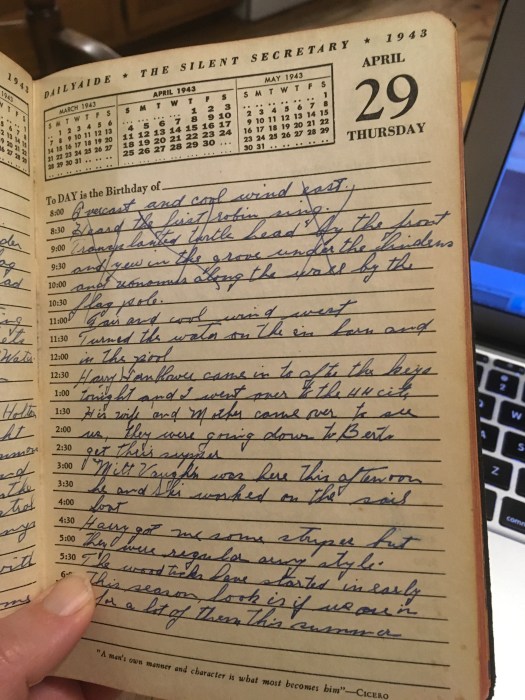 DAILYAIDE ★ THE SILENT SECRETARY ★ 1943
MARCH 1943
S M T W T F S
1 2 3 4 5 6
7 8 9 10 11 12 13
14 15 16 17 18 19 20
21 22 23 24 25 26 27
28 29 30 31
APRIL 1943
S M T W T F S
1 2 3
4 5 6 7 8 9 10
11 12 13 14 15 16 17
18 19 20 21 22 23 24
25 26 27 28 29 30
MAY 1943
S M T W T F S
1
2 3 4 5 6 7 8
9 10 11 12 13 14 15
16 17 18 19 20 21 22
23 24 25 26 27 28 29
30 31
APRIL
29
THURSDAY
To DAY is the Birthday of
8:00 Overcast and cool wind east.
8:30 Heard the first robin sing.
9:00 Transplanted turtle head by the front
9:30 and yew in the grove under the lindens
10:00 and along the wall by the
10:30 flag pole.
11:00 Fair and cool wind west
11:30 Turned the water on the in barn and
12:00 in the pool
12:30 Harry came in to the
1:00 tonight and I went over to the 44 city
1:30 His wife and Mother came over to see
2:00 us, They were going down to Berts
2:30 get their supper
3:00 Milt Vaughn was here this afternoon
3:30 he and worked on the sail
4:00 boat
4:30 Harry got me some stripes but
5:00 they were regular army style.
5:30 The woodticks have started in early
This season, look is if we are in
for a lot of them this summer
"A man's own manner and character is what most becomes him"—CICERO